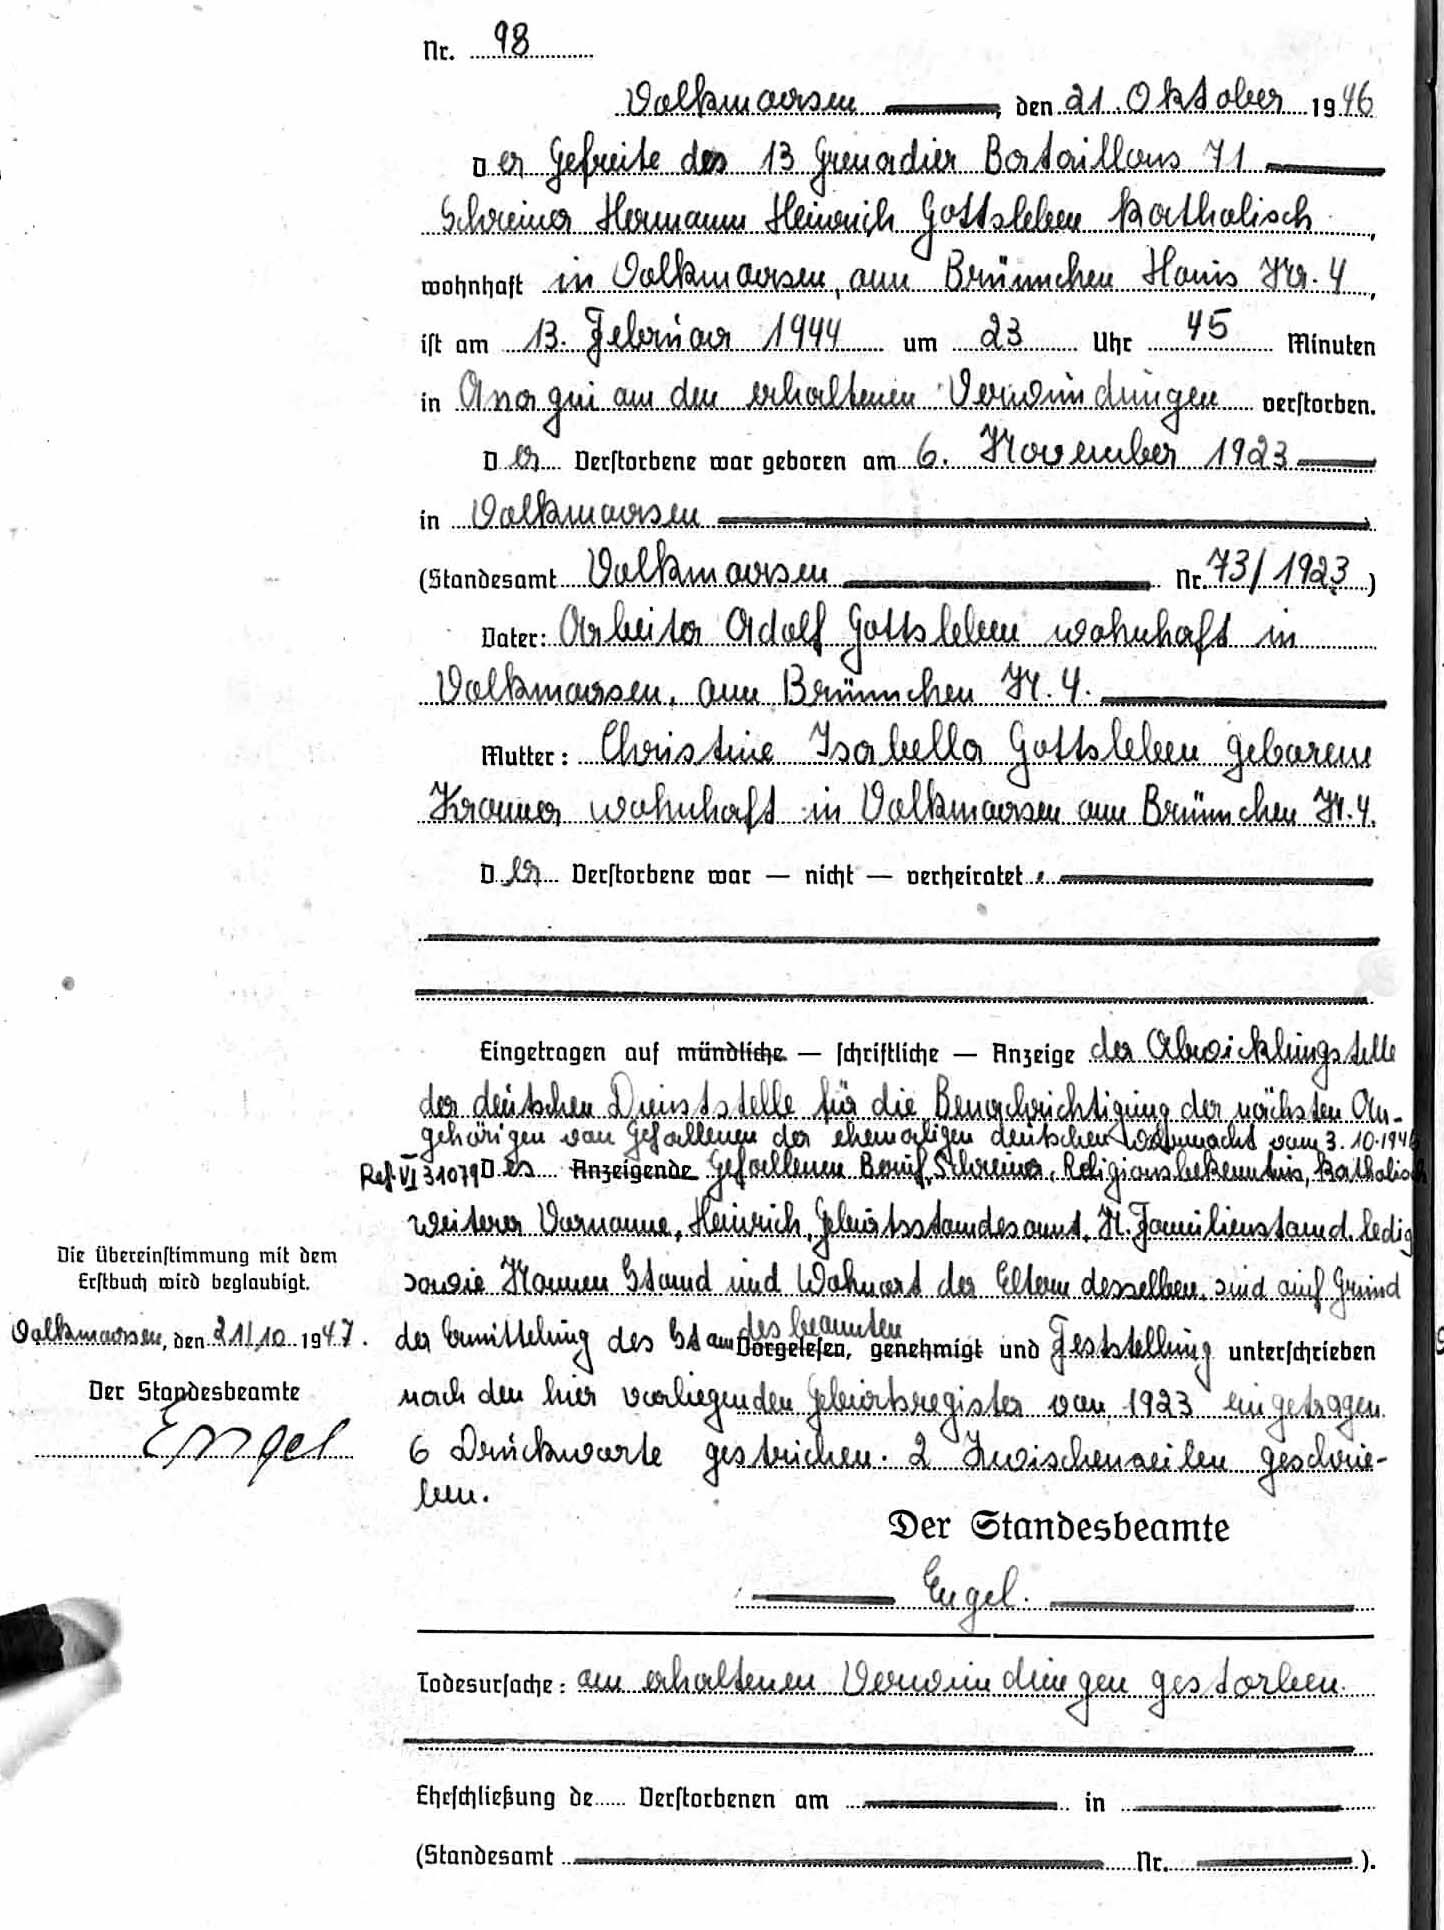 Nr. 98
Volkmarsen, den 21. Oktober 1946
Der Gefreite des 13 Grenadier Bataillons 71
Schreiner Hermann Heinrich Gottsleben katholisch,
wohnhaft in Volkmarsen, am Brünnchen Haus Nr. 4,
ist am 13. Februar 1944 um 23 Uhr 45 Minuten
in Anagni an den erhaltenen Verwundungen verstorben.
Der Verstorbene war geboren am 6. November 1923
in Volkmarsen
(Standesamt Volkmarsen Nr. 73/1923)
Vater: Arbeiter Adolf Gottsleben wohnhaft in
Volkmarsen, am Brünnchen Nr. 4.
Mutter: Christine Isabella Gottsleben geborene
wohnhaft in Volkmarsen am Brünnchen Nr. 4.
Der Verstorbene war — nicht — verheiratet.
Eingetragen auf mündliche — schriftliche — Anzeige der Abwicklungstelle
der deutschen Dienststelle für die Benachrichtigung der nächsten An-
gehörigen von Gefallenen der ehemaligen deutschen Wehrmacht vom 3.10.1946
Ref VI 31079 Des Anzeigende Gefallenen Beruf, Schreiner, Religionsbekenntnis, katholisch
weiterer Vorname, Heinrich, Geburtsstandesamt, Nr. Familienstand. ledig
sowie Namen Stand und Wohnort der Eltern desselben, sind auf Grund
der Ermittelung des Standesbeamten Vorgelesen, genehmigt und Feststellung unterschrieben
nach den hier vorliegenden Geburtsregister von 1923 eingetragen.
6 Druckworte gestrichen. 2 Zwischenzeilen geschrie-
ben.
Der Standesbeamte
Engel.
Die Übereinstimmung mit dem
Erstbuch wird beglaubigt.
Volkmarsen, den 21/10 1947.
Der Standesbeamte
Engel
Todesursache: an erhaltenen Verwundungen gestorben.
Eheschließung de Verstorbenen am in
(Standesamt Nr. ).